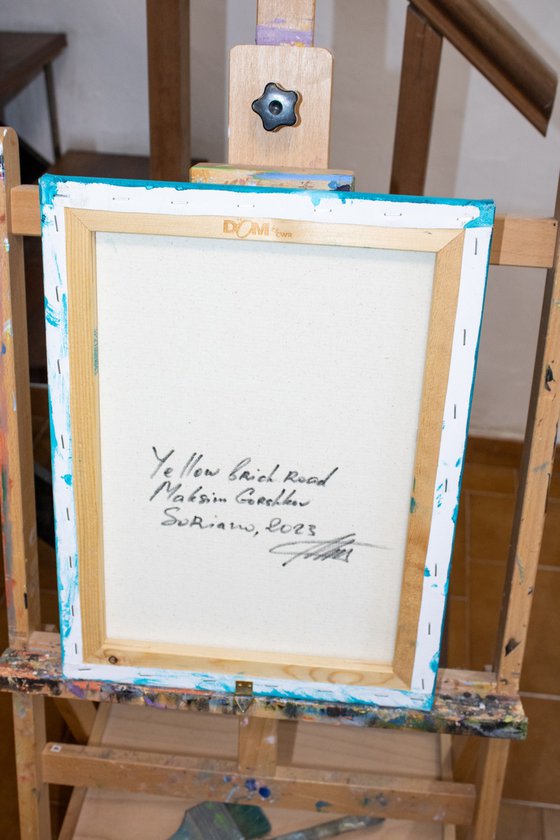 DOM CWR
Yellow brick road
Maksim Gorshkov
Soriano, 2023